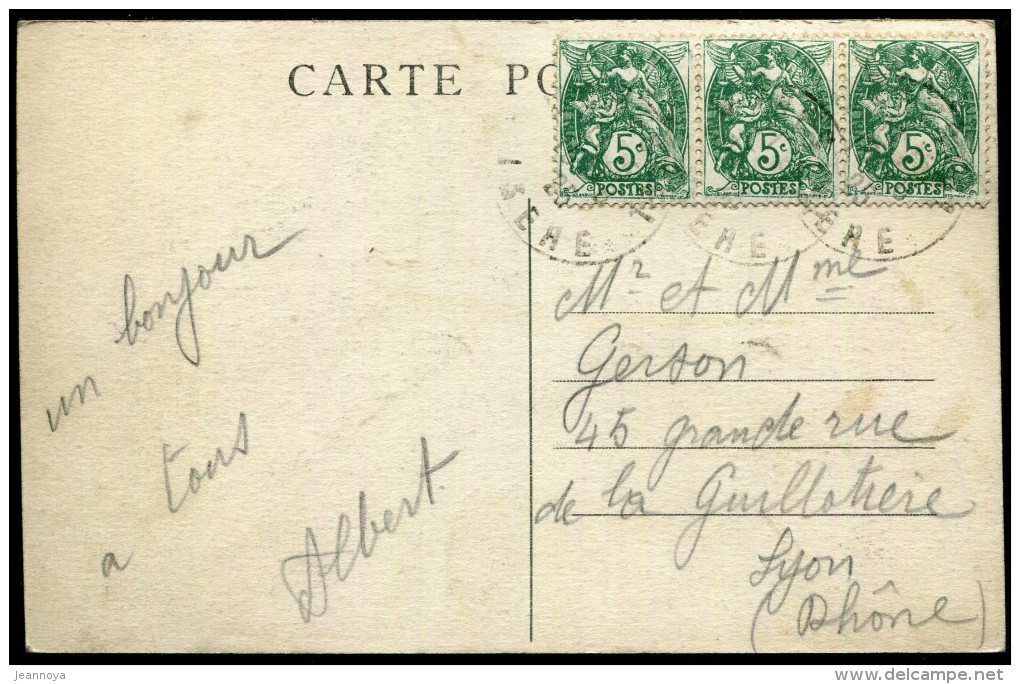 CARTE PO
5c
POSTES
5c
POSTES
5c
POSTES
ISERE
ERE
ERE
un bonjour
a tous
Albert
Mr et Mme
Gerson
45 grande rue
de la Guillotière
Lyon
(Rhône)
jeannoya
delcampe.net